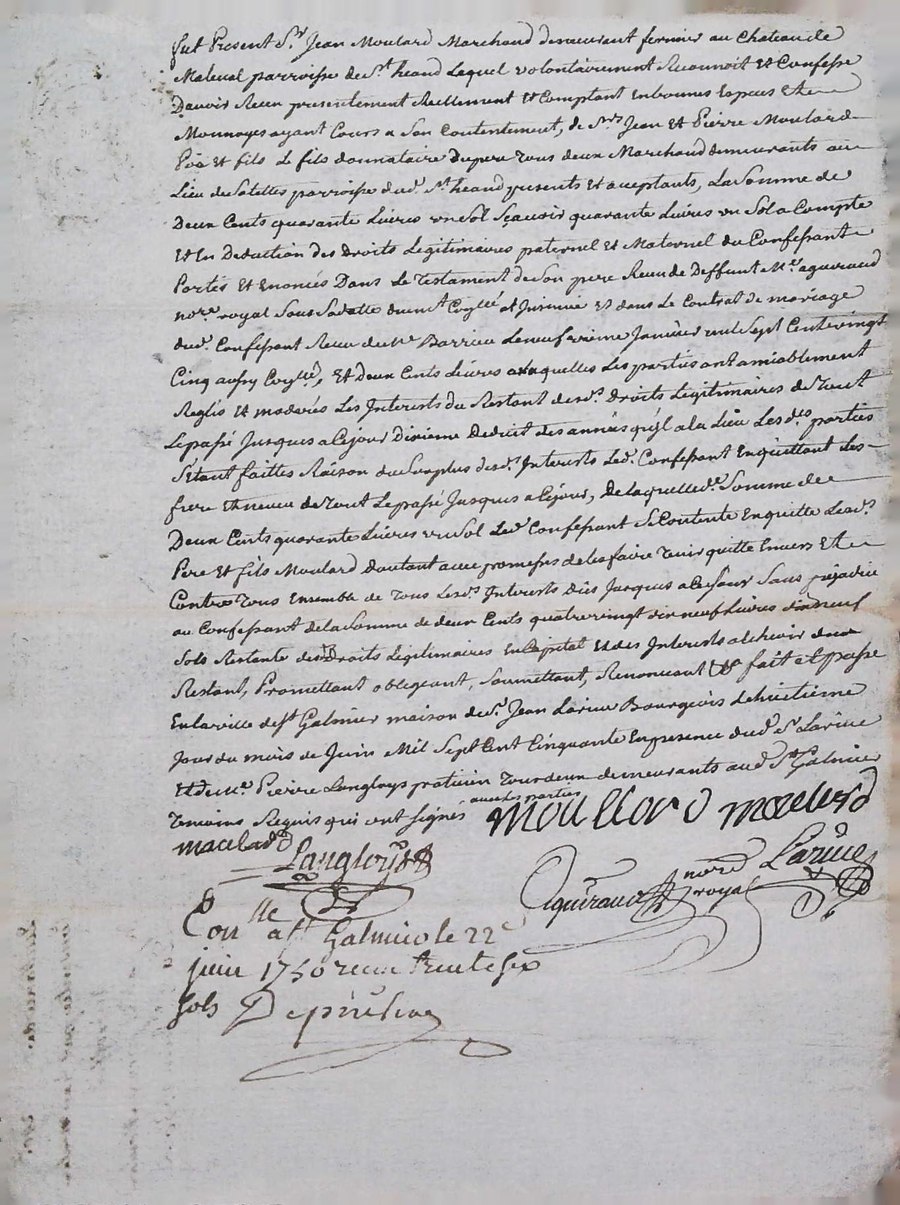 fut Present Sr. Jean Moulard Marchand demeurant fermier au Chateau de
Maleval parroisse de St. heand Lequel volontairement Reconnoit Et Confesse
Davoir Receu presentement Reellement Et Comptant En bonnes Espeses Et
Monnoyes ayant Cours a Son Contentement, de Srs. Jean Et Pierre Moulard
Pere Et fils Le fils donnataire du pere tous deux Marchand demeurants au
Lieu de parroisse dud. St. heand presents Et aceptants, La Somme de
Deux Cents quarante Livres un Sol Sçauoir quarante Livres un Sol a Compte
Et En Deduction des Droits Legitimaires paternel Et Maternel du Confessant
Portés Et Enoncés Dans Le Testament de Son pere Receu de Deffunt Me. aguiraud
nore. royal Sous Sa datte duement Coñllé et Insinué Et dans Le Contrat de mariage
dud. Confessant Receu de Me Barrieu Le neufvieme Janvier mil Sept Cent vingt
Cinq aussy Coñllé, Et deux Cents Livres auxquelles Les parties ont amiablement
Reglés Et moderés Les Interests du Restant desd. droits Legitimaires de tout
Le passé Jusques a Ce jour Dixieme Deduit des années qu'jl a Lieu Les des. parties
Setant faittes Raison du Surplus desd. Interests Led. Confessant En quittant Ses
frere Et neveu de tout Le passé Jusques a Ce jour, de laquelle de. Somme de
Deux Cents quarante Livres un Sol Led Confessant Se Contente En quitte Lesd.
Pere Et fils Moulard dautant avec promesses de les faire tenir quitte Envers Et
Contre tous Ensemble de tous Lesds Interests dus Jusques a Ce Jour Sans prejudice
au Confessant de la Somme de deux Cents quatrevingt dix neuf Livres dix neuf
Sols Restante desd Droits Legitimaires En Capital Et des Interests a Echeoir dud
Restant, Promettant obligeant, Soumettant, Renoncant &a fait Et passé
En la ville de St Galmier maison de Sr. Jean Larive Bourgeois Le huitieme
Jour du mois de Juin Mil Sept Cent Cinquante En presence dud. Sr Larive
Et de Me. Pierre Langloys praticien tous deux demeurants aud. St Galmier
Temoins Requis qui ont signés avec les parties
Moullard moulard
moulard
Langloys Larive
Aguiraud nore royal
Conlle a St Galmier le 22e
juin 1750 receu trente six
sols